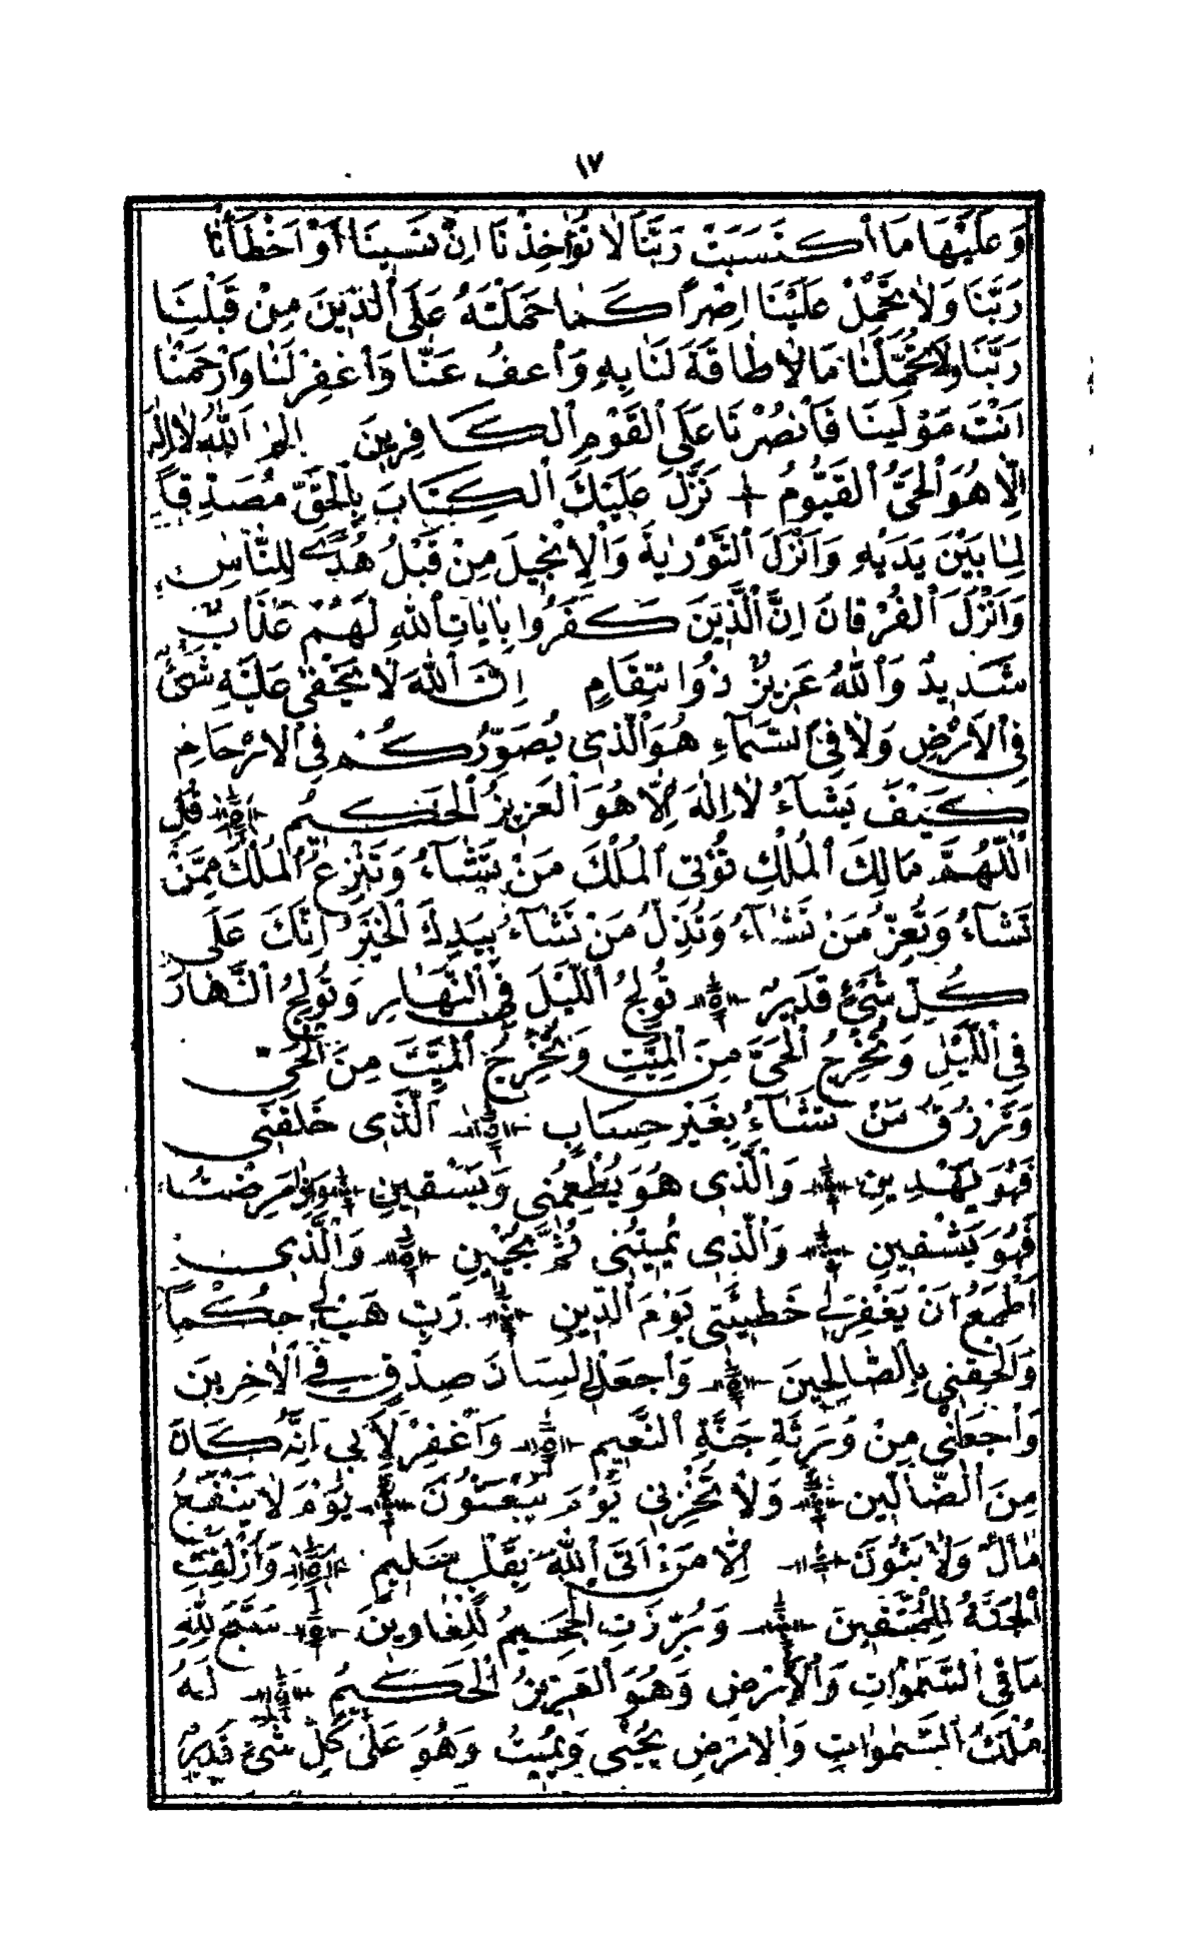 ١٧
وَعَلَيْهَا مَا اكْتَسَبَتْ رَبَّنَا لَا تُؤَاخِذْنَا اِنْ نَسِينَا اَوْ اَخْطَأْنَا
رَبَّنَا وَلَا تَحْمِلْ عَلَيْنَا اِصْرًا كَمَا حَمَلْتَهُ عَلَى الَّذِينَ مِنْ قَبْلِنَا
رَبَّنَا وَلَا تُحَمِّلْنَا مَا لَا طَاقَةَ لَنَا بِهِ وَاعْفُ عَنَّا وَاغْفِرْ لَنَا وَارْحَمْنَا
اَنْتَ مَوْلَينَا فَانْصُرْنَا عَلَى الْقَوْمِ الْكَافِرِينَ الم اَللّٰهُ لَا اِلٰهَ
اِلَّا هُوَ الْحَيُّ الْقَيُّومُ نَزَّلَ عَلَيْكَ الْكِتَابَ بِالْحَقِّ مُصَدِّقًا
لِمَا بَيْنَ يَدَيْهِ وَاَنْزَلَ التَّوْرٰيةَ وَالْاِنْجِيلَ مِنْ قَبْلُ هُدًى لِلنَّاسِ
وَاَنْزَلَ الْفُرْقَانَ اِنَّ الَّذِينَ كَفَرُوا بِاٰيَاتِ اللّٰهِ لَهُمْ عَذَابٌ
شَدِيدٌ وَاللّٰهُ عَزِيزٌ ذُو انْتِقَامٍ اِنَّ اللّٰهَ لَا يَخْفٰى عَلَيْهِ شَيْءٌ
فِي الْاَرْضِ وَلَا فِي السَّمَاءِ هُوَ الَّذِي يُصَوِّرُكُمْ فِي الْاَرْحَامِ
كَيْفَ يَشَاءُ لَا اِلٰهَ اِلَّا هُوَ الْعَزِيزُ الْحَكِيمُ قُلِ
اللّٰهُمَّ مَالِكَ الْمُلْكِ تُؤْتِي الْمُلْكَ مَنْ تَشَاءُ وَتَنْزِعُ الْمُلْكَ مِمَّنْ
تَشَاءُ وَتُعِزُّ مَنْ تَشَاءُ وَتُذِلُّ مَنْ تَشَاءُ بِيَدِكَ الْخَيْرُ اِنَّكَ عَلَى
كُلِّ شَيْءٍ قَدِيرٌ تُولِجُ اللَّيْلَ فِي النَّهَارِ وَتُولِجُ النَّهَارَ
فِي اللَّيْلِ وَتُخْرِجُ الْحَيَّ مِنَ الْمَيِّتِ وَتُخْرِجُ الْمَيِّتَ مِنَ الْحَيِّ
وَتَرْزُقُ مَنْ تَشَاءُ بِغَيْرِ حِسَابٍ الَّذِي خَلَقَنِي
فَهُوَ يَهْدِينِ وَالَّذِي هُوَ يُطْعِمُنِي وَيَسْقِينِ وَاِذَا مَرِضْتُ
فَهُوَ يَشْفِينِ وَالَّذِي يُمِيتُنِي ثُمَّ يُحْيِينِ وَالَّذِي
اَطْمَعُ اَنْ يَغْفِرَ لِي خَطِيئَتِي يَوْمَ الدِّينِ رَبِّ هَبْ لِي حُكْمًا
وَاَلْحِقْنِي بِالصَّالِحِينَ وَاجْعَلْ لِي لِسَانَ صِدْقٍ فِي الْاٰخِرِينَ
وَاجْعَلْنِي مِنْ وَرَثَةِ جَنَّةِ النَّعِيمِ وَاغْفِرْ لِاَبِي اِنَّهُ كَانَ
مِنَ الضَّالِّينَ وَلَا تُخْزِنِي يَوْمَ يُبْعَثُونَ يَوْمَ لَا يَنْفَعُ
مَالٌ وَلَا بَنُونَ اِلَّا مَنْ اَتَى اللّٰهَ بِقَلْبٍ سَلِيمٍ وَاُزْلِفَتِ
الْجَنَّةُ لِلْمُتَّقِينَ وَبُرِّزَتِ الْجَحِيمُ لِلْغَاوِينَ سَبَّحَ لِلّٰهِ
مَا فِي السَّمٰوَاتِ وَالْاَرْضِ وَهُوَ الْعَزِيزُ الْحَكِيمُ لَهُ
مُلْكُ السَّمٰوَاتِ وَالْاَرْضِ يُحْيِي وَيُمِيتُ وَهُوَ عَلٰى كُلِّ شَيْءٍ قَدِيرٌ